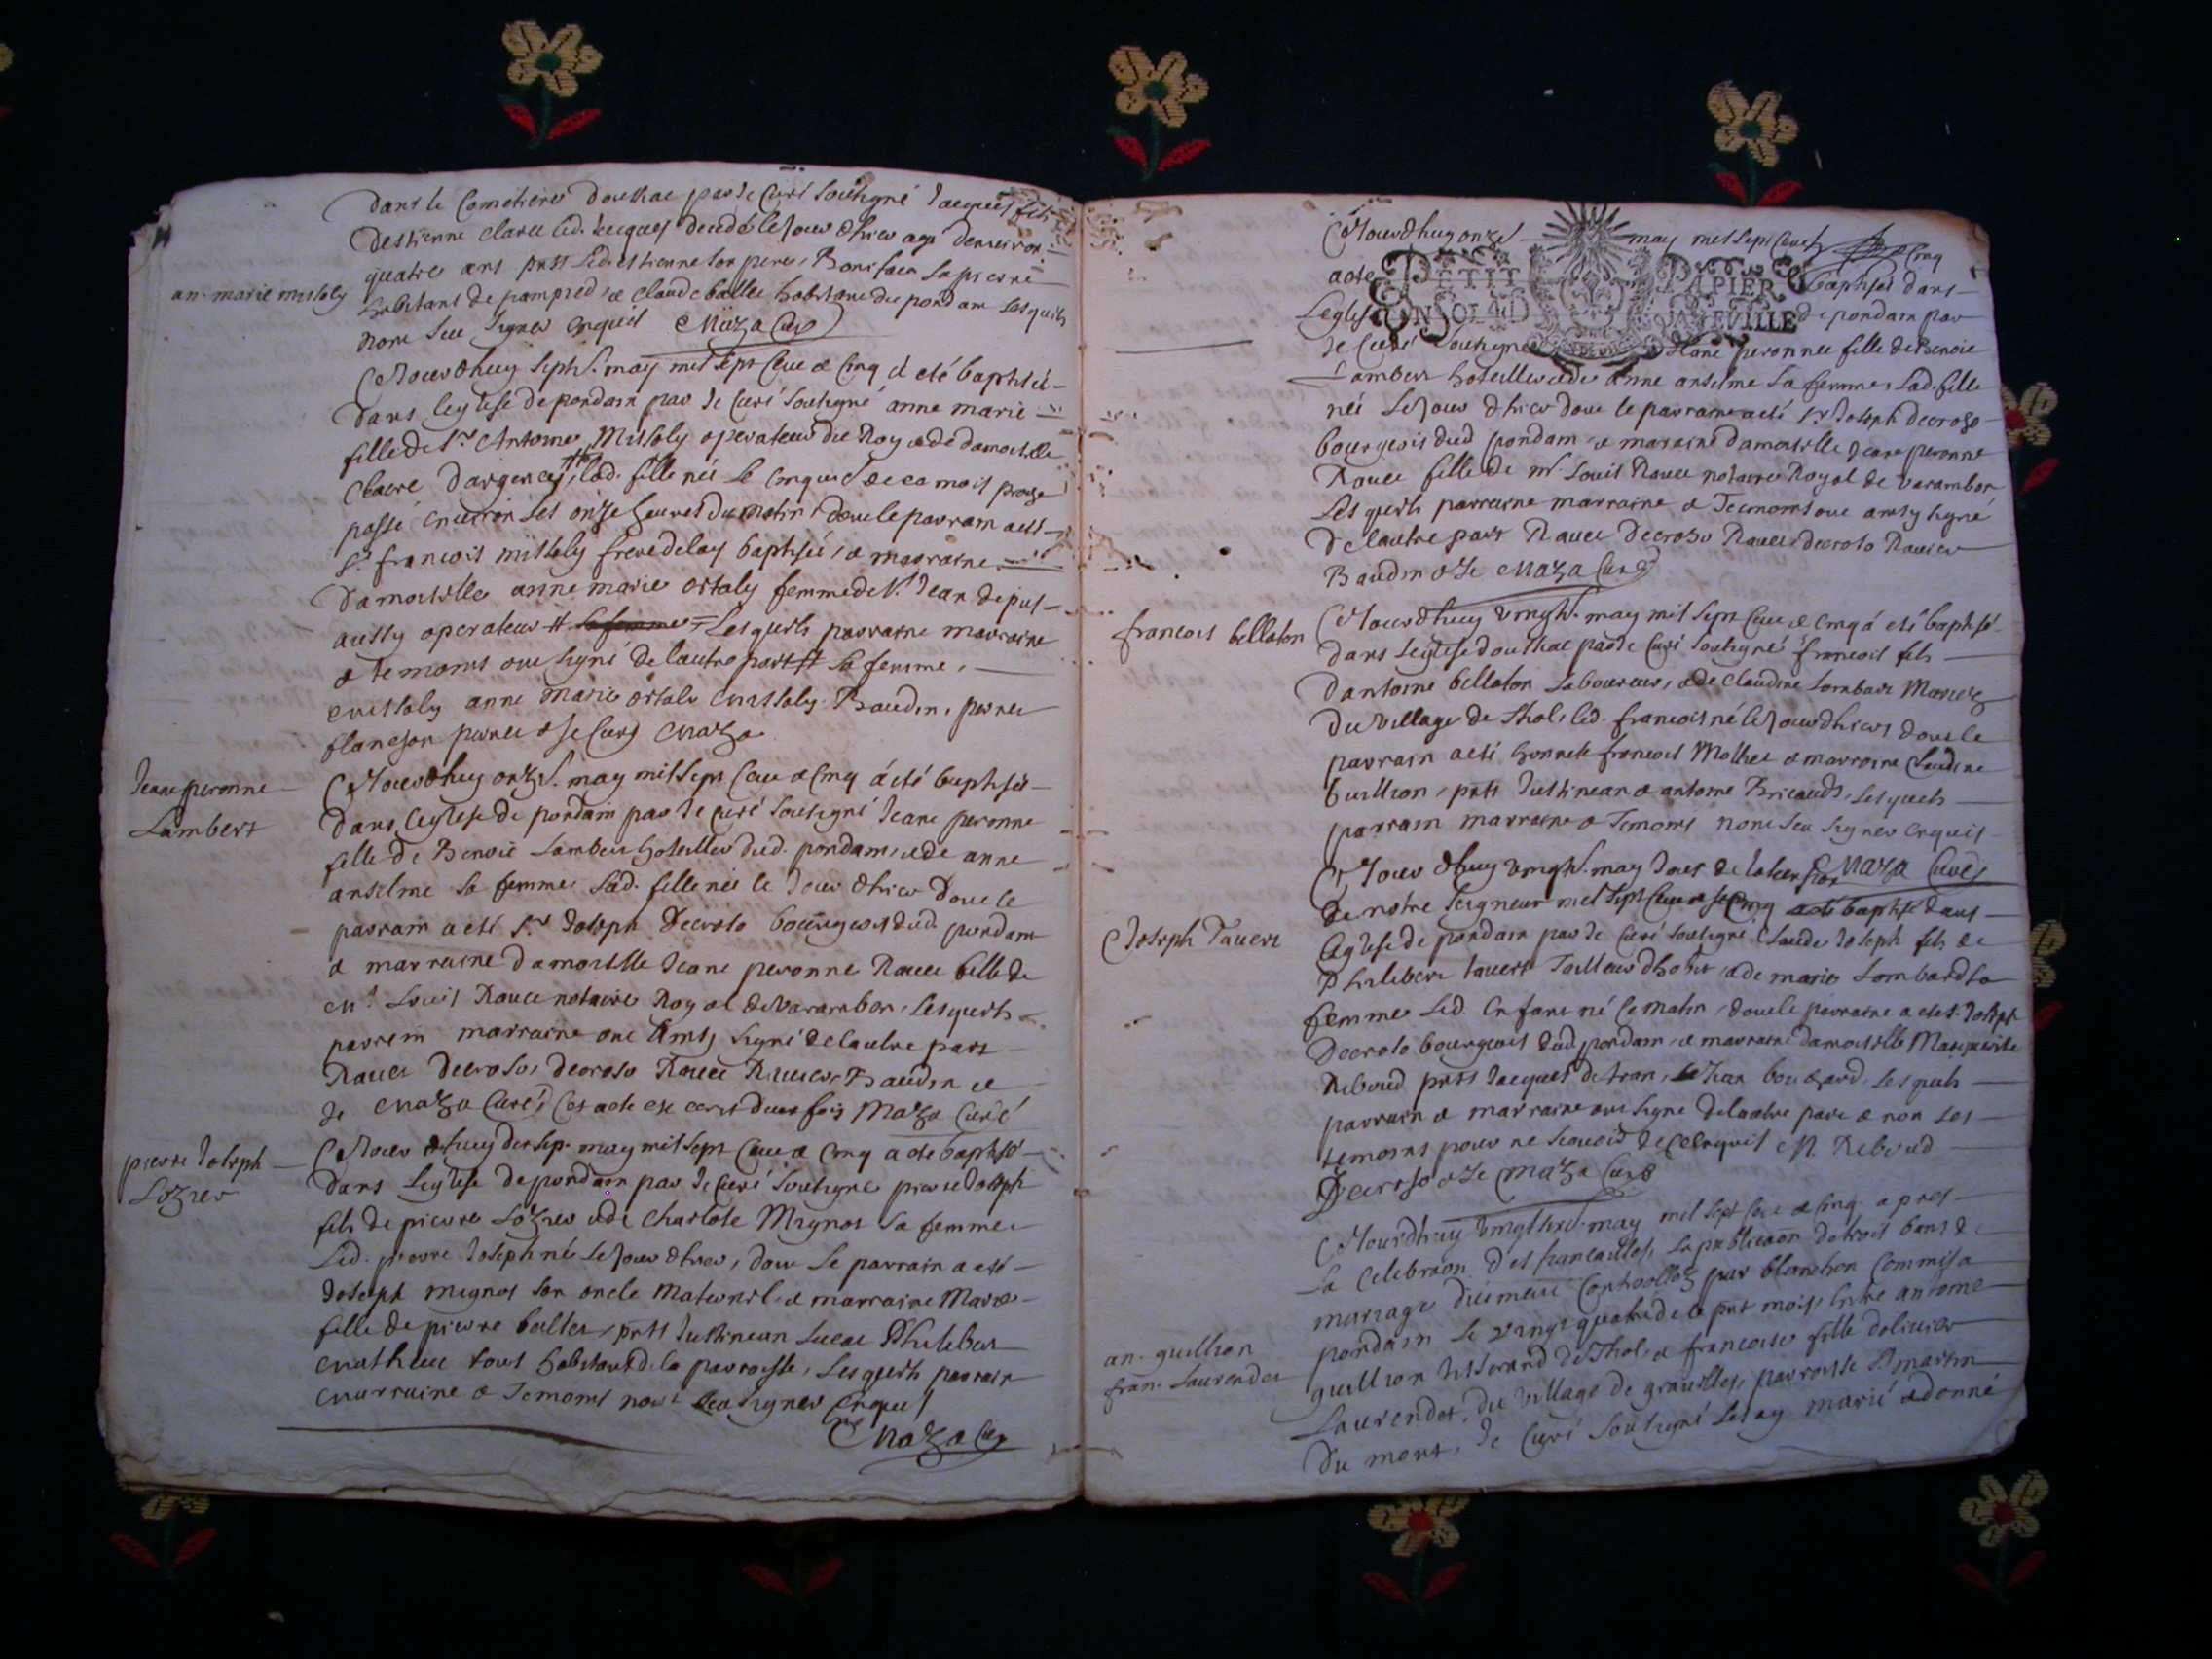 dans le Cometiere douthac par Je Curé soubsigné Jacques fils
destienne Claret led. Jacques decedé le Jour dhier agé denviron
quatre ans pntt led. estienne son pere, Boniface Lapierre
an. marie missoly
habitant de pampied, & Claude ballet habitant du pondain lesquels
nont sceu signer enquis Maza Curé
Ce Jourdhuy sept. may mil sept Cent & Cinq a eté baptisée
dans leglise de pondain par Je Curé soubsigné anne marie
fille de Sr. Antoine Missoly operateur du Roy & de damoiselle
Claere dargences, lad. fille née le Cinquie. de ce mois
passé environ les onze heures du matin, dont le parrain a eté
Sr. francois missoly frere de lad. baptisée, & marraine
damoiselle anne marie ortaly femme de Sr. Jean
aussy operateur # lesquels parraine marraine
& temoins ont signé de lautre part # sa femme,
missoly anne marie ortaly missoly Baudin, perret
flancson perret & Je Curé Maza
Jeane peronne
Lambert
Ce Jourdhuy onze. may mil sept Cent & Cinq a eté baptisée
dans leglise de pondain par Je Curé soubsigné Jeane peronne
fille de Benoit Lambert hotellier dud. pondain, & de anne
anselme sa femme, lad. fille née le Jour dhier dont le
parrain a eté Sr. Joseph Decroso bourgeois dud. pondain
& marraine damoiselle Jeane peronne Ravet fille de
Mr. Louis Ravet notaire Royal de Varambon, lesquels
parrein marraine ont ainsy signé de lautre part
Ravet Decroso, decroso Ravet Ravier, Baudin &
Je Maza Curé, Cet acte est ecrit deux fois Maza Curé
pierre Joseph
Lozier
Ce Jour dhuy dixsep. may mil sept Cent & Cinq a eté baptisé
dans leglise de pondain par Je Curé soubsigné pierre Joseph
fils de pierre Lozier & de Charlote Mignot sa femme,
led. pierre Joseph né le Jour dhier, dont le parrain a eté
Joseph mignot son oncle maternel, & marraine Marie
fille de pierre ballet, pntt Justinean Lucat Philibert
mathieu tous habitants de la parroisse, lesquels parrain
marraine & temoins nont sceu signer enquis
Maza Curé
Ce Jourdhuy onze. may mil sept Cent & Cinq
a eté baptisée dans
leglise de pondain par
Je Curé soubsigné Jeane peronne fille de Benoit
PETIT PAPIER
UN SOL LA FEUILLE
Lambert hotellier & de anne anselme sa femme, lad. fille
née le Jour dhier dont le parraine a eté Sr. Joseph decroso
bourgeois dud. pondain & maraine damoiselle Jeane peronne
Ravet fille de mr. Louis Ravet notaire Royal de varambon
lesquels parraine marraine & Temoins ont ainsy signé
de lautre part Ravet Decroso Ravet decroso Ravier
Baudin & Je Maza Curé
francois billaton
Ce Jourdhuy vingt. may mil sept Cent & Cinq a eté baptisé
dans leglise douthac par Je Curé soubsigné francois fils
dantoine billaton laboureur, & de Claudine Lombart Mariez
du village de thol, led. francois né le Jour dhier, dont le
parrain a eté honnete francois Molliet & marraine Claudine
Guillion, pntt Justinean & antoine Bricaud, lesquels
parrain marraine & Temoins nont sceu signer enquis
Maza Curé
Ce Jour dhuy vingt. may Jour de lascension
de notre seigneur mil sept Cent & Cinq a eté baptisé dans
Joseph Tavert
leglise de pondain par Je Curé soubsigné Claude Joseph fils de
Philibert tavert Tailleur dhabit, & de marie Lombard sa
femme led. Enfant né Ce matin, dont le parraine a eté Sr. Joseph
Decroso bourgeois dud. pondain, & marraine damoiselle Marguerite
Reboud pntt Jacques detran, & Jean bouzard, lesquels
parrain & marraine ont signé de lautre part & non les
temoins pour ne scavoir de Ce enquis M. Reboud
Decroso & Je Maza Curé
Ce Jourdhuy may mil sept Cent & Cinq, apres
la Celebraon des fiancailles, la publicaon de trois bans de
mariage duement Controollez par blanchon Commis a
pondain le vingt quatre de le pnt mois, Entre antoine
an. guillion
fran. Laurendet
guillion tisserand de Thol, & francoise fille dolivier
Laurendet, du village de gravelles, parroisse St. martin
du mont, Je Curé soubsigné les ay marié & donné